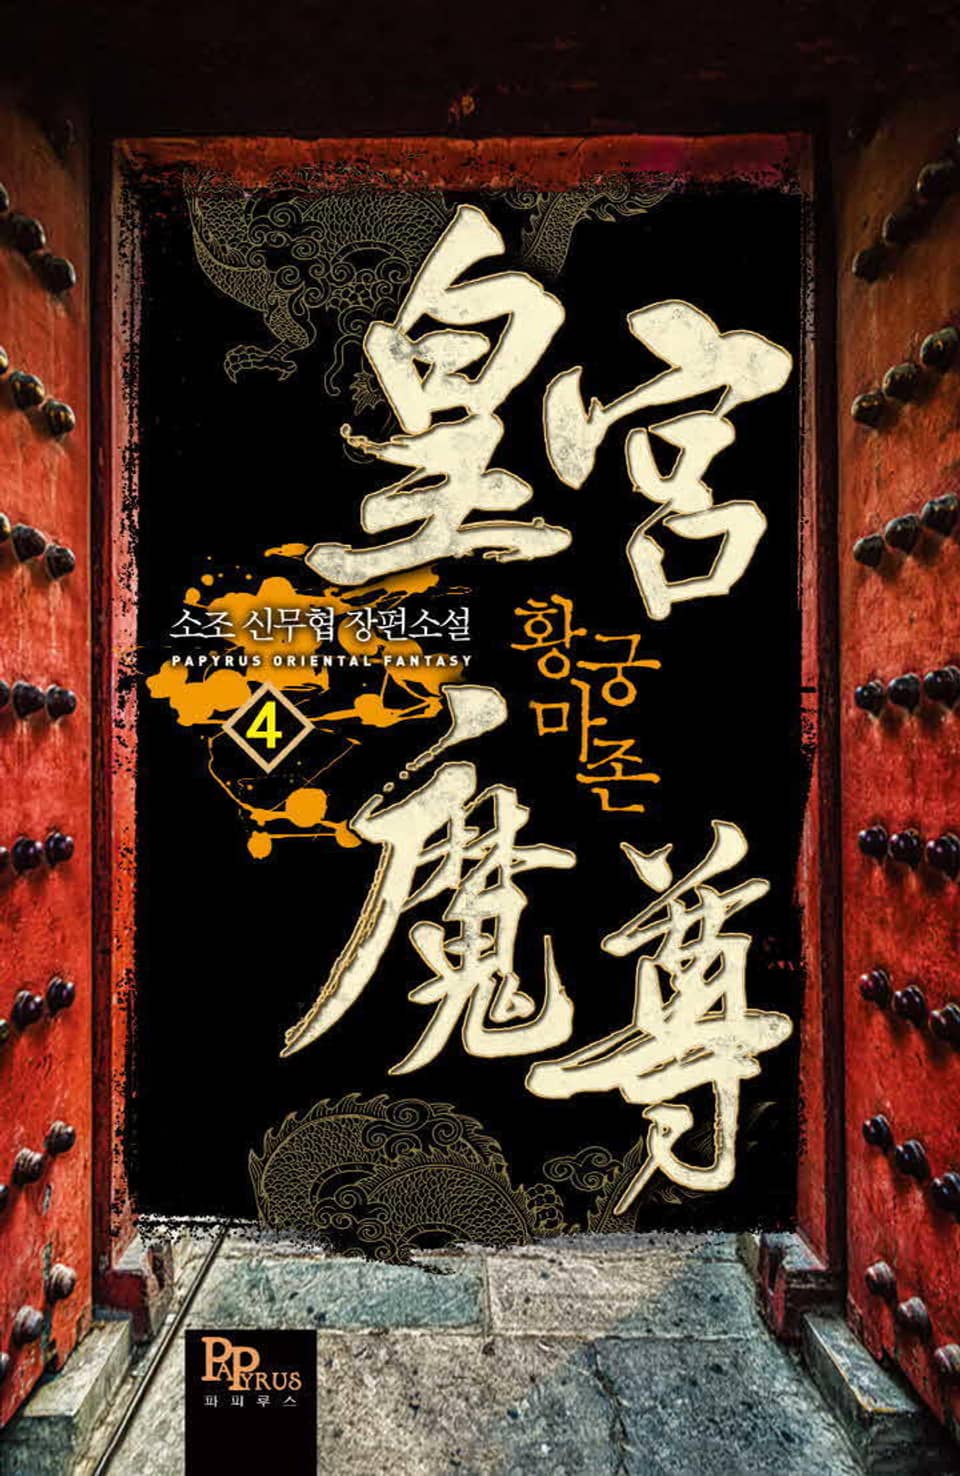 皇宮
소조 신무협 장편소설
PAPYRUS ORIENTAL FANTASY
4
황궁
마존
魔尊
PAPYRUS
파피루스